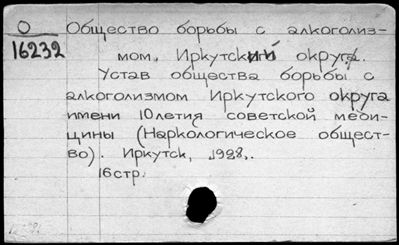 О
16232
Общество борьбы с алкоголиз-
мом, Иркутский округ.
Устав общества борьбы с
алкоголизмом Иркутского округа
имени 10летия советской меди-
цины (Наркологическое общест-
во). Иркутск, 1928,.
16стр.